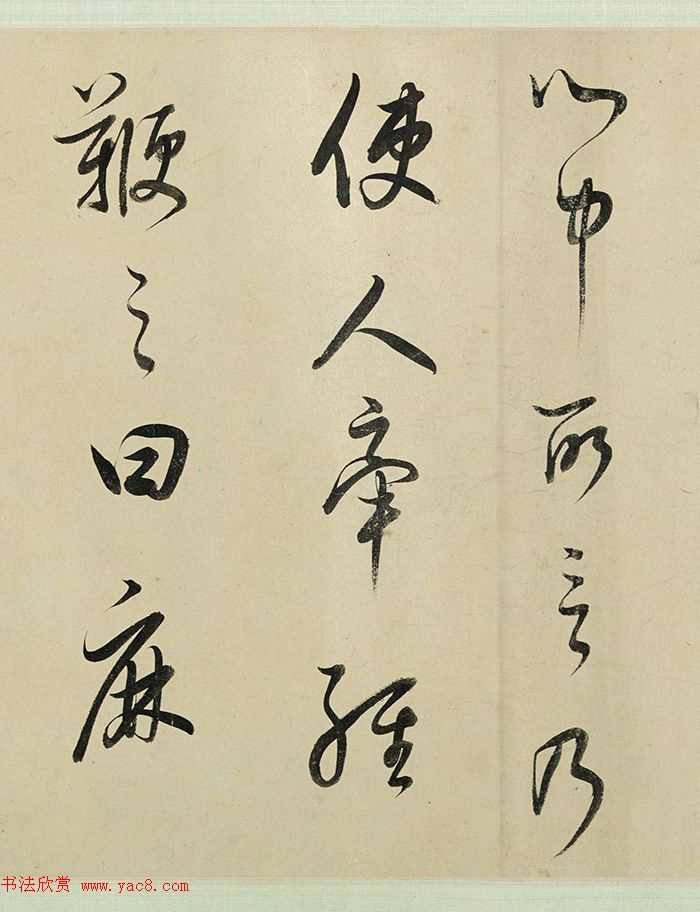 心中所言乃
使人牽經
鞭之曰麻
书法欣赏 www.yac8.com